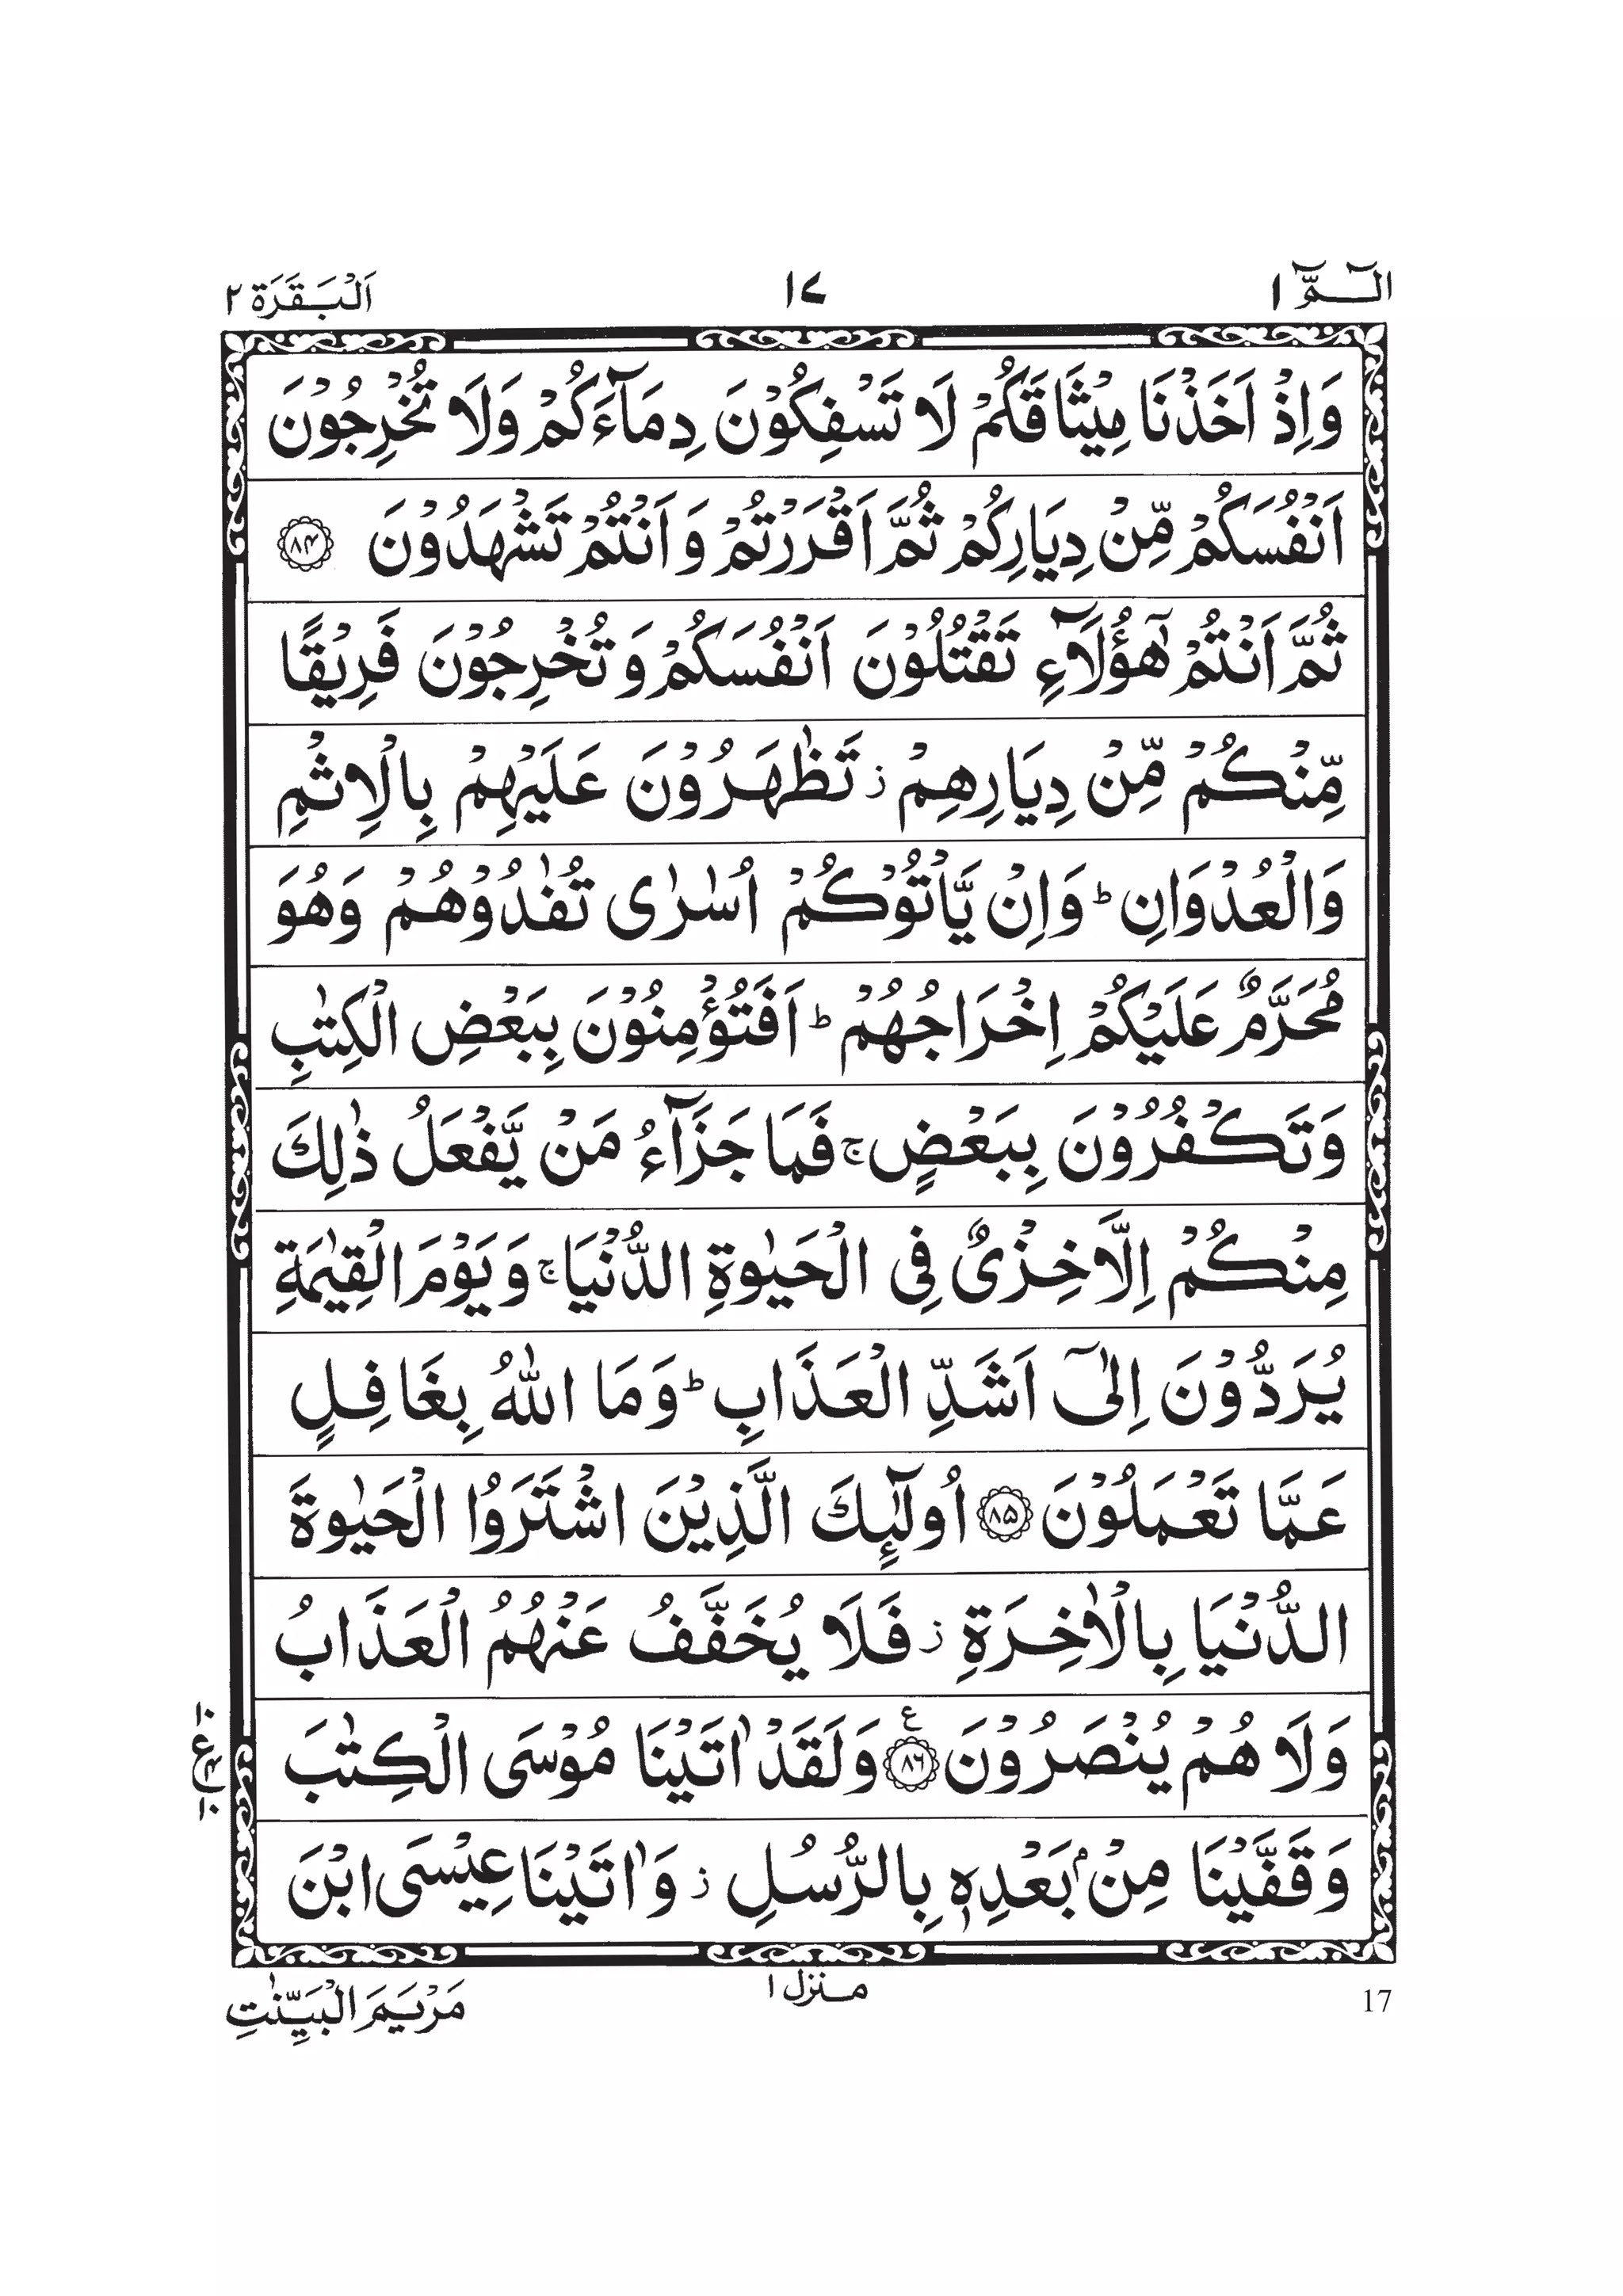 الٓـمّٓ ۱ ۱۷ اَلْبَـقَرَة ۲
وَاِذْ اَخَذْنَا مِيْثَاقَكُمْ لَا تَسْفِكُوْنَ دِمَآءَكُمْ وَلَا تُخْرِجُوْنَ
اَنْفُسَكُمْ مِّنْ دِيَارِكُمْ ثُمَّ اَقْرَرْتُمْ وَ اَنْتُمْ تَشْهَدُوْنَ ۸۴
ثُمَّ اَنْتُمْ هٰٓؤُلَآءِ تَقْتُلُوْنَ اَنْفُسَكُمْ وَ تُخْرِجُوْنَ فَرِيْقًا
مِّنْكُمْ مِّنْ دِيَارِهِمْ ز تَظٰهَرُوْنَ عَلَيْهِمْ بِالْاِثْمِ
وَالْعُدْوَانِ ؕ وَاِنْ يَّاْتُوْكُمْ اُسٰرٰى تُفٰدُوْهُمْ وَهُوَ
مُحَرَّمٌ عَلَيْكُمْ اِخْرَاجُهُمْ ؕ اَفَتُؤْمِنُوْنَ بِبَعْضِ الْكِتٰبِ
وَتَكْفُرُوْنَ بِبَعْضٍ ۚ فَمَا جَزَآءُ مَنْ يَّفْعَلُ ذٰلِكَ
مِنْكُمْ اِلَّا خِزْىٌ فِى الْحَيٰوةِ الدُّنْيَا ۚ وَ يَوْمَ الْقِيٰمَةِ
يُرَدُّوْنَ اِلٰٓى اَشَدِّ الْعَذَابِ ؕ وَمَا اللّٰهُ بِغَافِلٍ
عَمَّا تَعْمَلُوْنَ ۸۵ اُولٰٓئِكَ الَّذِيْنَ اشْتَرَوُا الْحَيٰوةَ
الدُّنْيَا بِالْاٰخِرَةِ ز فَلَا يُخَفَّفُ عَنْهُمُ الْعَذَابُ
وَلَا هُمْ يُنْصَرُوْنَ ۸۶ ع وَلَقَدْ اٰتَيْنَا مُوْسَى الْكِتٰبَ
وَقَفَّيْنَا مِنْۢ بَعْدِهٖ بِالرُّسُلِ ز وَاٰتَيْنَا عِيْسَى ابْنَ
17 مـنزل ۱ مَرْيَمَ الْبَيِّنٰتِ